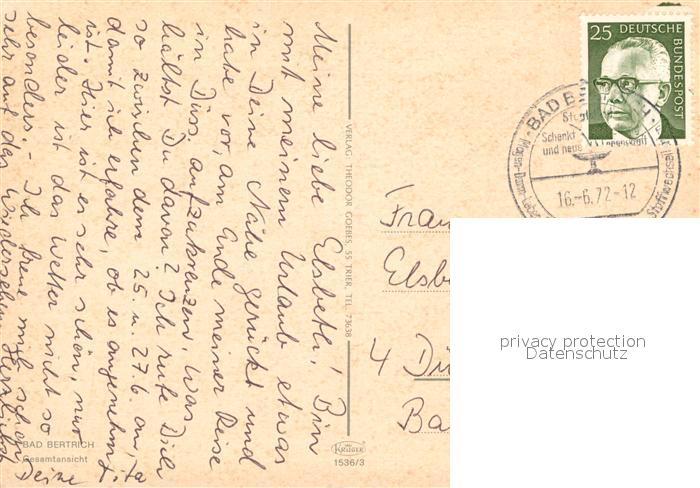 Meine liebe Elsbeth! Bin
mit meinem Urlaub etwas
in Deine Nähe gerückt und
habe vor, am Ende meiner Reise
in Düss. aufzukreuzen. Was
hältst Du davon? Ich rufe Dich
so zwischen dem 25. u. 27.6. an,
damit ich erfahre, ob es angenehm
ist. Hier ist es sehr schön, nur
leider ist das Wetter nicht so
besonders - Ich freue mich schon
sehr auf das Wiedersehen. Herzlichst
Deine
BAD BERTRICH
Gesamtansicht
VERLAG THEODOR GOEBES, 55 TRIER, TEL. 73638
KRÜGER
1536/3
25 DEUTSCHE
BUNDESPOST
BAD
Schenkt
und neue
Magen-Darm-Leber
Stoffwechsel
16.-6.72-12
Frau
Elsb
4 Dü
Ba
privacy protection
Datenschutz